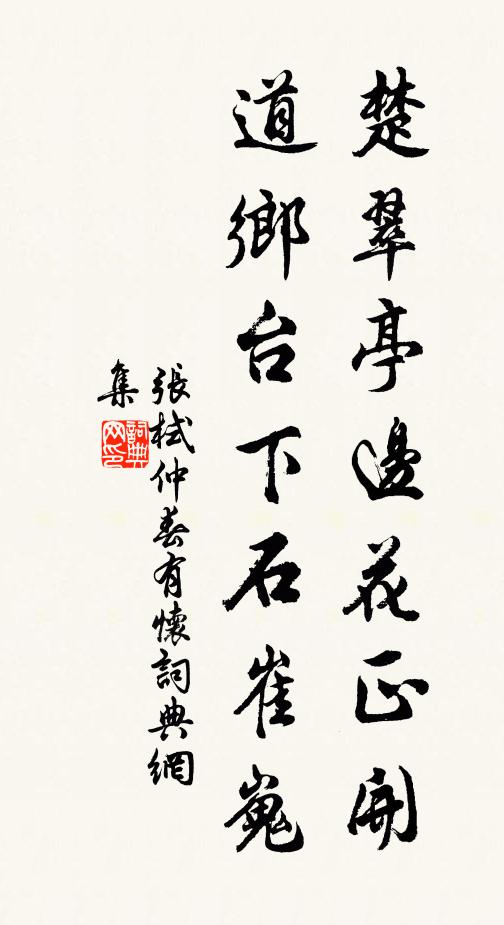 楚翠亭邊花正開
道鄉台下石崔嵬
張栻仲春有懷詞典網
集
詞典網印